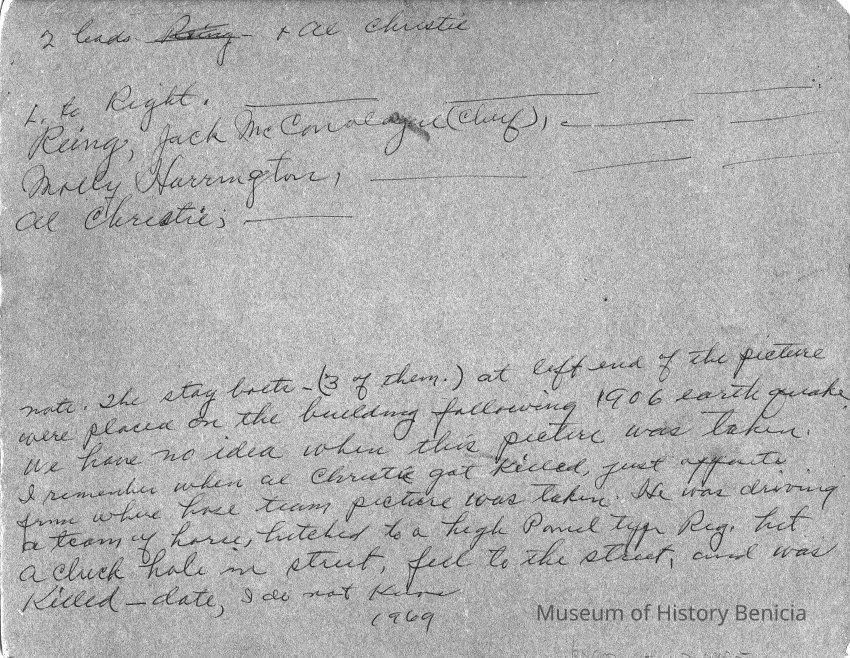 2 leads + Al Christie
L. to Right.
Reing, Jack McConologue (Chief),
Molly Harrington,
Al Christie;
note. The stay bolts - (3 of them.) at left end of the picture
were placed on the building following 1906 earth quake
We have no idea when this picture was taken.
I remember when Al Christie got killed, just opposite
from where hose team picture was taken. He was driving
a team of horses, hitched to a high Panel type Rig. hit
a chuck hole in street, fell to the street, and was
Killed - date, I do not Know
1969
Museum of History Benicia